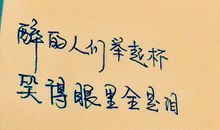 醉的人们举起杯
笑得眼里全是泪